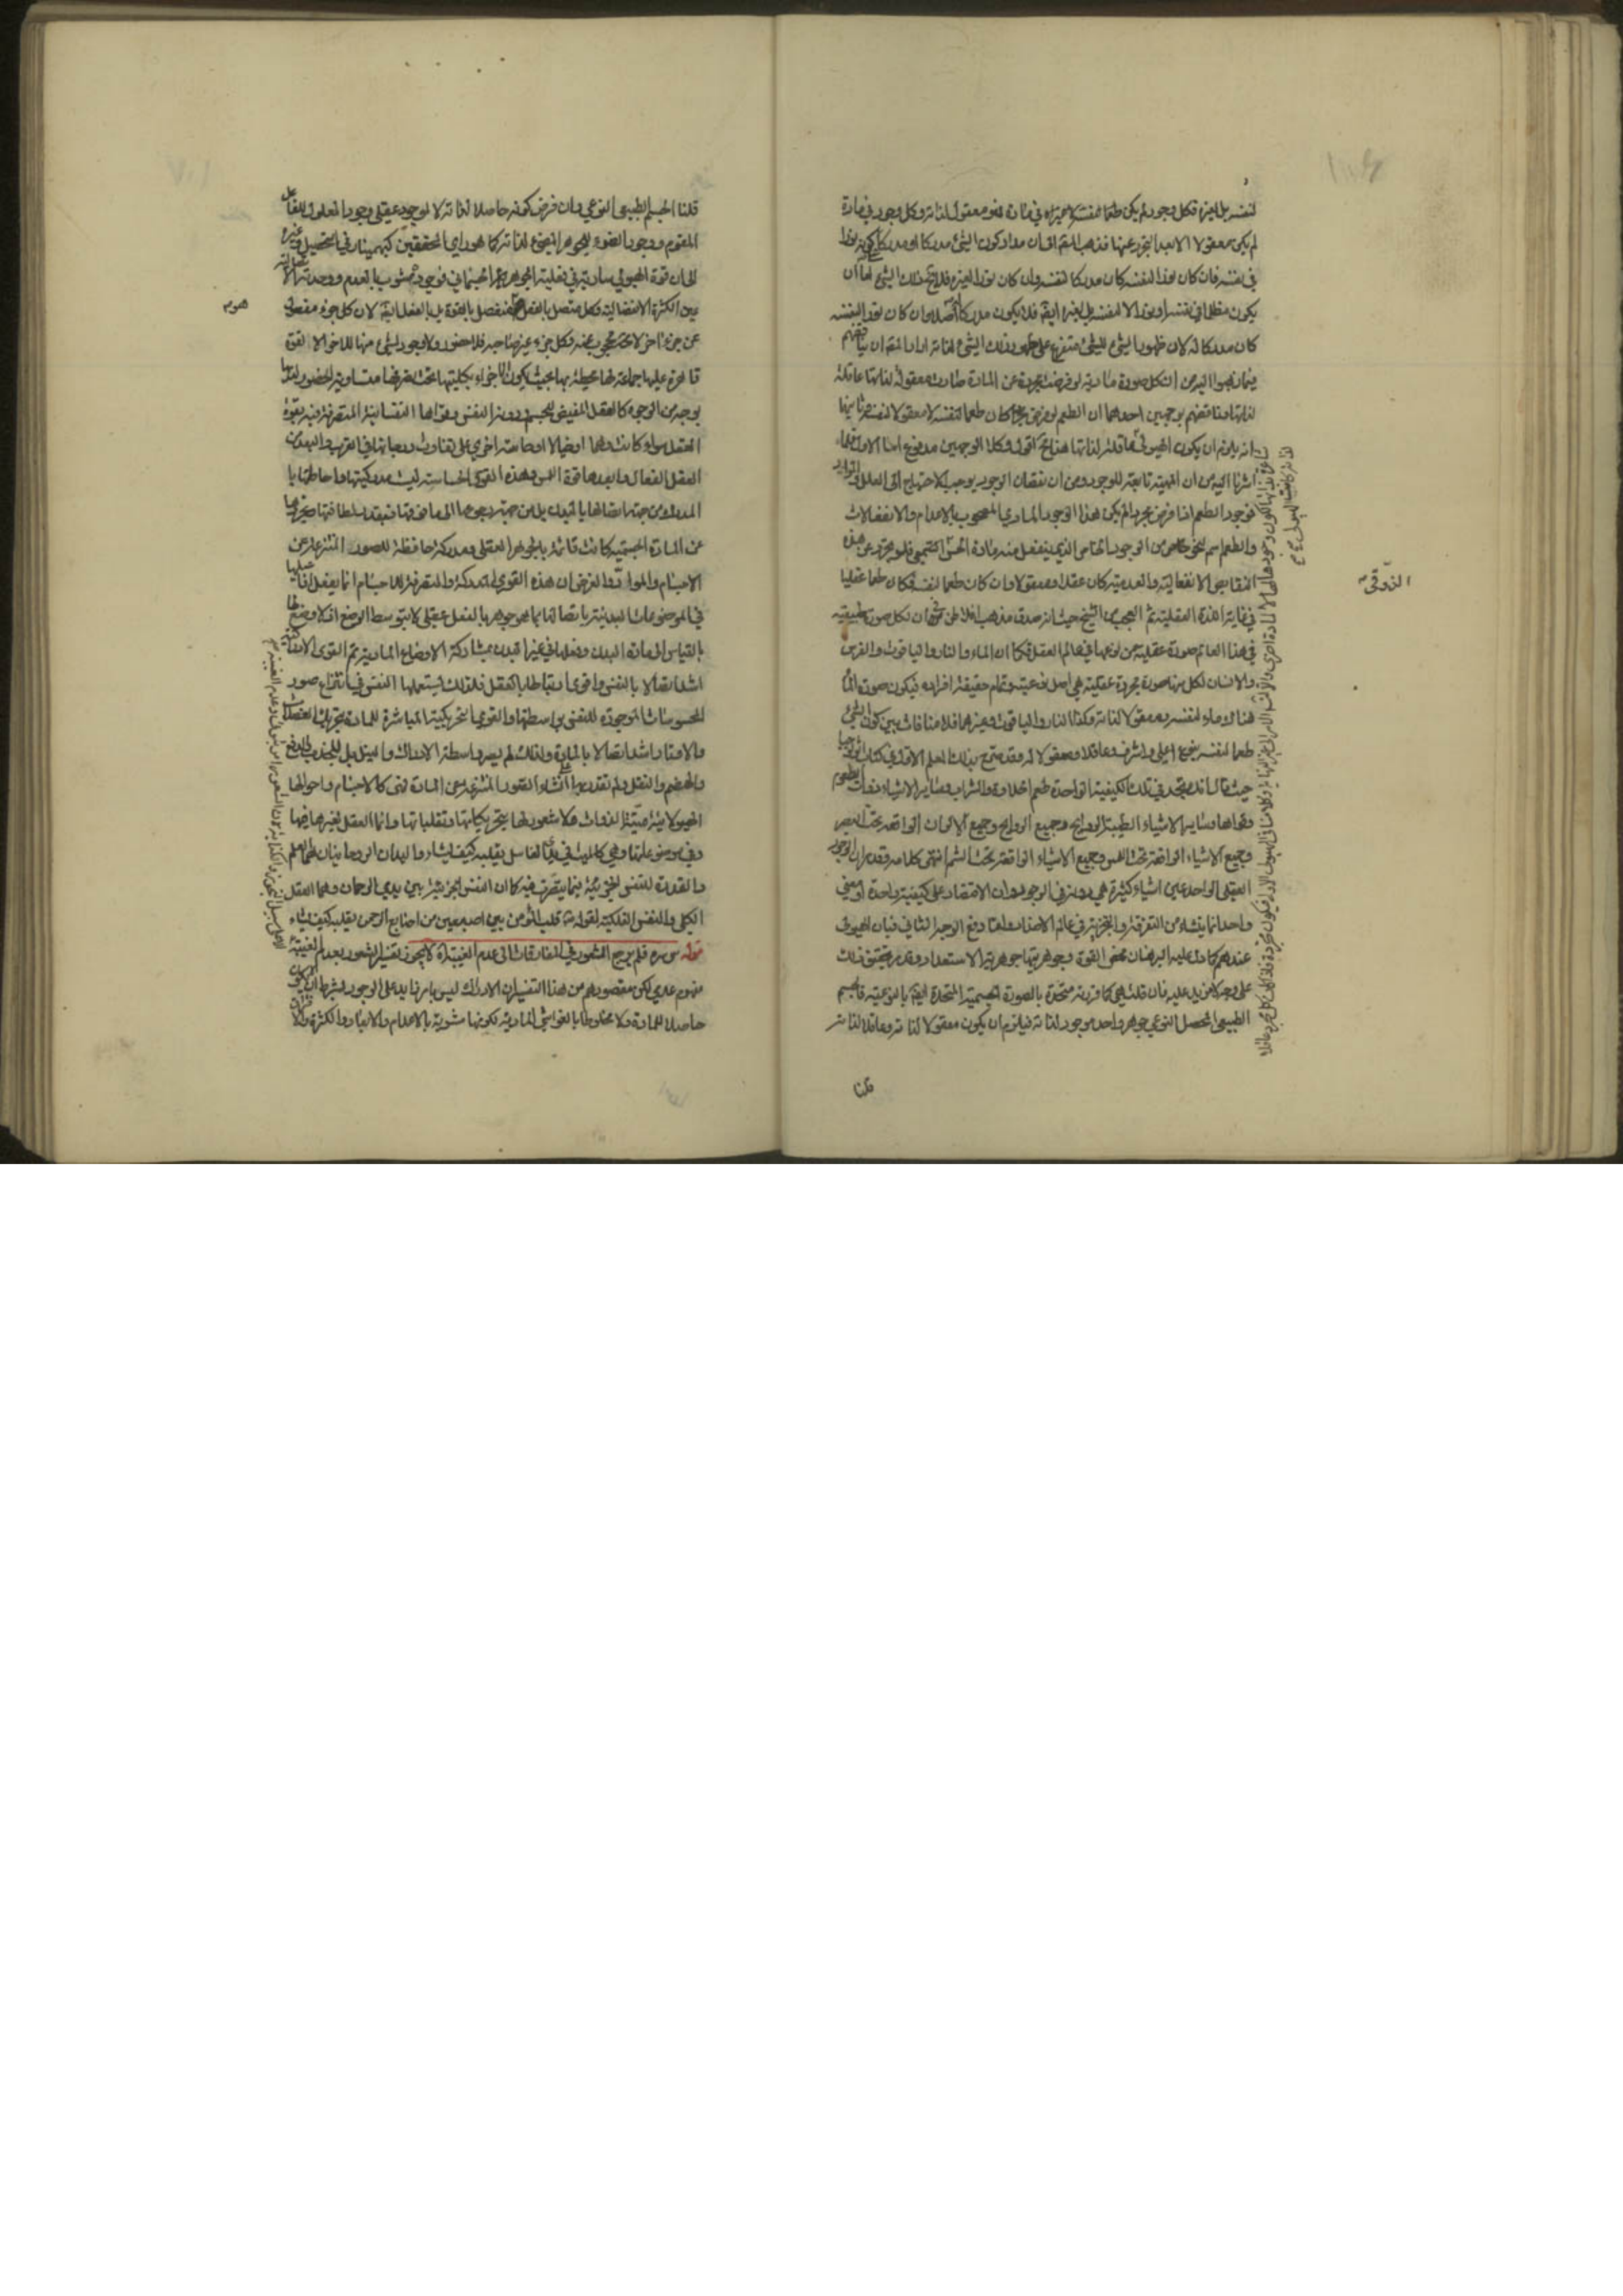 لنفسه بل لغيره فكل وجود لم يكن طعما لنفسه في ذاته فهو معقول لذاته وكل وجود في مادة
لم يكن معقولا الا بعد التجرد عنها فذهب المقتم الى ان مدار كون الشئ مدركا او مدركا كونه نورا
في نفسه فان كان نورا لنفسه كان مدركا لنفسه وان كان نورا لغيره فلا ذلك الشئ اما ان
يكون مظلما في نفسه او نورا لا لنفسه بل لغيره ايضا فلا يكون مدركا اصلا وان كان نورا لنفسه
كان مدركا له لان ظهور الشئ للشئ متفرع على ظهور ذلك الشئ لذاته اراد المقتم ان يناقضهم
فيما ذهبوا اليه من ان كل صورة مادية لو فرضت مجردة عن المادة صارت معقولة لذاتها عاقلة
لذاتها وناقضهم بوجهين احدهما ان الطعم لو فرض مجردا كان طعما لنفسه لا معقولا لنفسه وثانيهما
انه يلزم ان يكون الهيولى عاقلة لذاتها اقول وكلا الوجهين مدفوع اما الاول فلما
اشرنا اليه من ان المهية تابعة للوجود ومن ان نقصان الوجود يوجب الاحتياج الى العلل
فوجود الطعم اذا فرض مجردا لم يكن هذا الوجود المادي المصحوب بالاعدام والانفعالات
والطعم اسم لنحو خاص من الوجود الخاص الذي ينفعل منه مادة الحس فلو تجرد عن هذه
النقايص الانفعالية والعدمية كان عقلا ومعقولا وان كان طعما لنفسه فكان طعما عقليا
في غاية اللذة العقلية ثم العجب من الشيخ حيث انه صدق مذهب افلاطن في ان لكل صورة طبيعية
في هذا العالم صورة عقلية من نوعها في عالم العقل فكما ان الماء والنار والياقوت والفرس
والانسان لكل منها صورة مجردة عقلية هي اصل نوعيته وتمام حقيقة افراده فيكون صورة الماء
هناك ماء لنفسه ومعقولا لذاته وكذا النار والياقوت وغيرهما فلا منافات بين كون الشئ
طعما لنفسه بنحو اعلى واشرف وعاقلا ومعقولا له وقد صرح بذلك المعلم الاول في كتاب اثولوجيا
حيث قال انك تجد في تلك الكيفية الواحدة طعم الحلاوة والشراب وساير الاشياء ذوات الطعوم
وقواها وساير الاشياء الطيبة الروايح وجميع الروايح وجميع الالوان الواقعة تحت البصر
وجميع الاشياء الواقعة تحت اللمس وجميع الاشياء الواقعة تحت الشم انتهى كلامه وقد مر ان الوجود
العقلي الواحد عين اشياء كثيرة هي دونه في الوجود وان الاقتصار على كيفية واحدة او معنى
واحد انما ينشاء من التفرقة والتجزية في عالم الاضداد واما دفع الوجه الثاني فبان الهيولى
عندهم كما دل عليه البرهان محض القوة وجوهريتها جوهرية الاستعداد وقد مر تحقيق ذلك
على وجه لا مزيد عليه فان قلت هي كما قررته متحدة بالصورة الجسمية المتحدة ايضا بالنوعية فالجسم
الطبيعي المحصل النوعي جوهر واحد موجود لذاته فيلزم ان يكون معقولا لذاته وعاقلا لذاته
قلنا
الذوقي
قلنا الجسم الطبيعي النوعي وان فرض كونه حاصلا لذاته لا لوجود عقلي وجود المعلول للفاعل
المقوم ووجود الضوء للجوهر المضئ لذاته كما هو راي المحققين كبهمنيار في التحصيل وغيره
الا ان قوة الهيولى سارية في فعلية الجوهر الجسماني فوجوده مشوب بالعدم ووحدته
عين الكثرة الانفصالية وكل متصل بالفعل منفصل بالقوة بل بالفعل ايضا لان كل جزء مفصول
هوم
عن جزء اخر وكل جزء عن صاحبه فلا حضور ولا وجود لشئ منها للاخر الا لقوة
قاهرة عليها جماعة لها محيطة بها بحيث يكون الاجزاء بكليتها تحت تصرفها متساوية الحضور لديها
بوجه من الوجوه كالعقل المفيض للجسم ودونه النفس وقواها النفسانية المتصرفة فيه بقوة
العقل سواء كانت وهما او خيالا او حاسة اخرى على تفاوت درجاتها في القرب والبعد من
العقل الفعال وابعدها قوة اللمس وهذه القوى الحساسة ليست مدركيتها واحاطتها بالمدرك
من جهة اتصالها بالبدن بل من جهة رجوعها الى ما فوقها فبقدر لطافتها وتجردها
عن المادة الجسمية كانت قائمة بالجوهر العقلي ومدركة حافظة للصور المنتزعة عن
الاجسام والمواد والغرض ان هذه القوى المدركة والمتصرفة للاجسام انما يفعل افاعيلها
في الموضوعات البدنية باتصالها بما هو جوهر بالفعل عقلي لا بتوسط الوضع اذ لا وضع لها
بالقياس الى مادة البدن وفعلها في غير البدن بمشاركة الاوضاع المادية ثم القوى الادراكية
اشد اتصالا بالنفس واقوى ارتباطا بالعقل فلذلك يستعملها النفس في انتزاع صور
المحسوسات الموجودة للنفس بواسطتها والقوى التحريكية المباشرة للمادة بتحريك العضلات
والاوتار اشد اتصالا بالمادة ولذلك لم يصر واسطة الادراك والتخيل بل للجذب والدفع
والهضم والنقل ولم تقدر على انشاء الصور المنتزعة عن المادة فهى كالاجسام واحوالها
الهيولانية ميتة الذوات فلا شعور لها بتحريكاتها وتقلباتها وانما العقل لغيرها فيها
وفي موضوعاتها وهي كالميت في يد الغاسل يقلبه كيف يشاء واليدان الروحانيتان هما العلم
والقدرة للنفس الجزئية فيما يتصرف فيه كما ان النفس الجزئية بين يدي الرحمان وهما العقل
الكلي والنفس الفلكية لقوله ص قلب المؤمن بين اصبعين من اصابع الرحمن يقلبه كيف يشاء
قوله س سره فلم يرجح الشعور في المفارقات الى عدم الغيبة اه لا يجوز تفسير الشعور بعدم الغيبة
مفهوم عدمي لكن مقصودهم من هذا التفسير ان الادراك ليس بامر زايد على الوجود بشرط ان لا يكون
حاصلا للمادة ولا مخلوطا بالغواشي المادية لكونها مشوبة بالاعدام والابعاد والكثرة